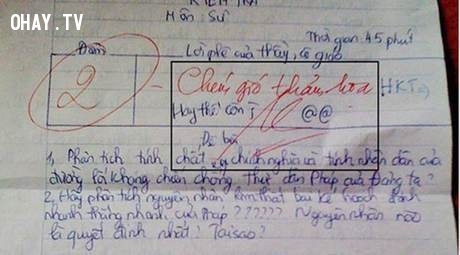 OHAY.TV
KIỂM TRA
Môn: Sử
Thời gian: 45 phút
Điểm
Lời phê của thầy, cô giáo
2
Chém gió thảm họa
HKI
Hay thế còn j
@@
Đề bài
1, Phân tích tính chất chính nghĩa và tính nhân dân của
đường lối kháng chiến chống thực dân Pháp của Đảng ta?
2, Hãy phân tích nguyên nhân làm thất bại kế hoạch đánh
nhanh thắng nhanh của Pháp?????? Nguyên nhân nào
là quyết định nhất? Tại sao?